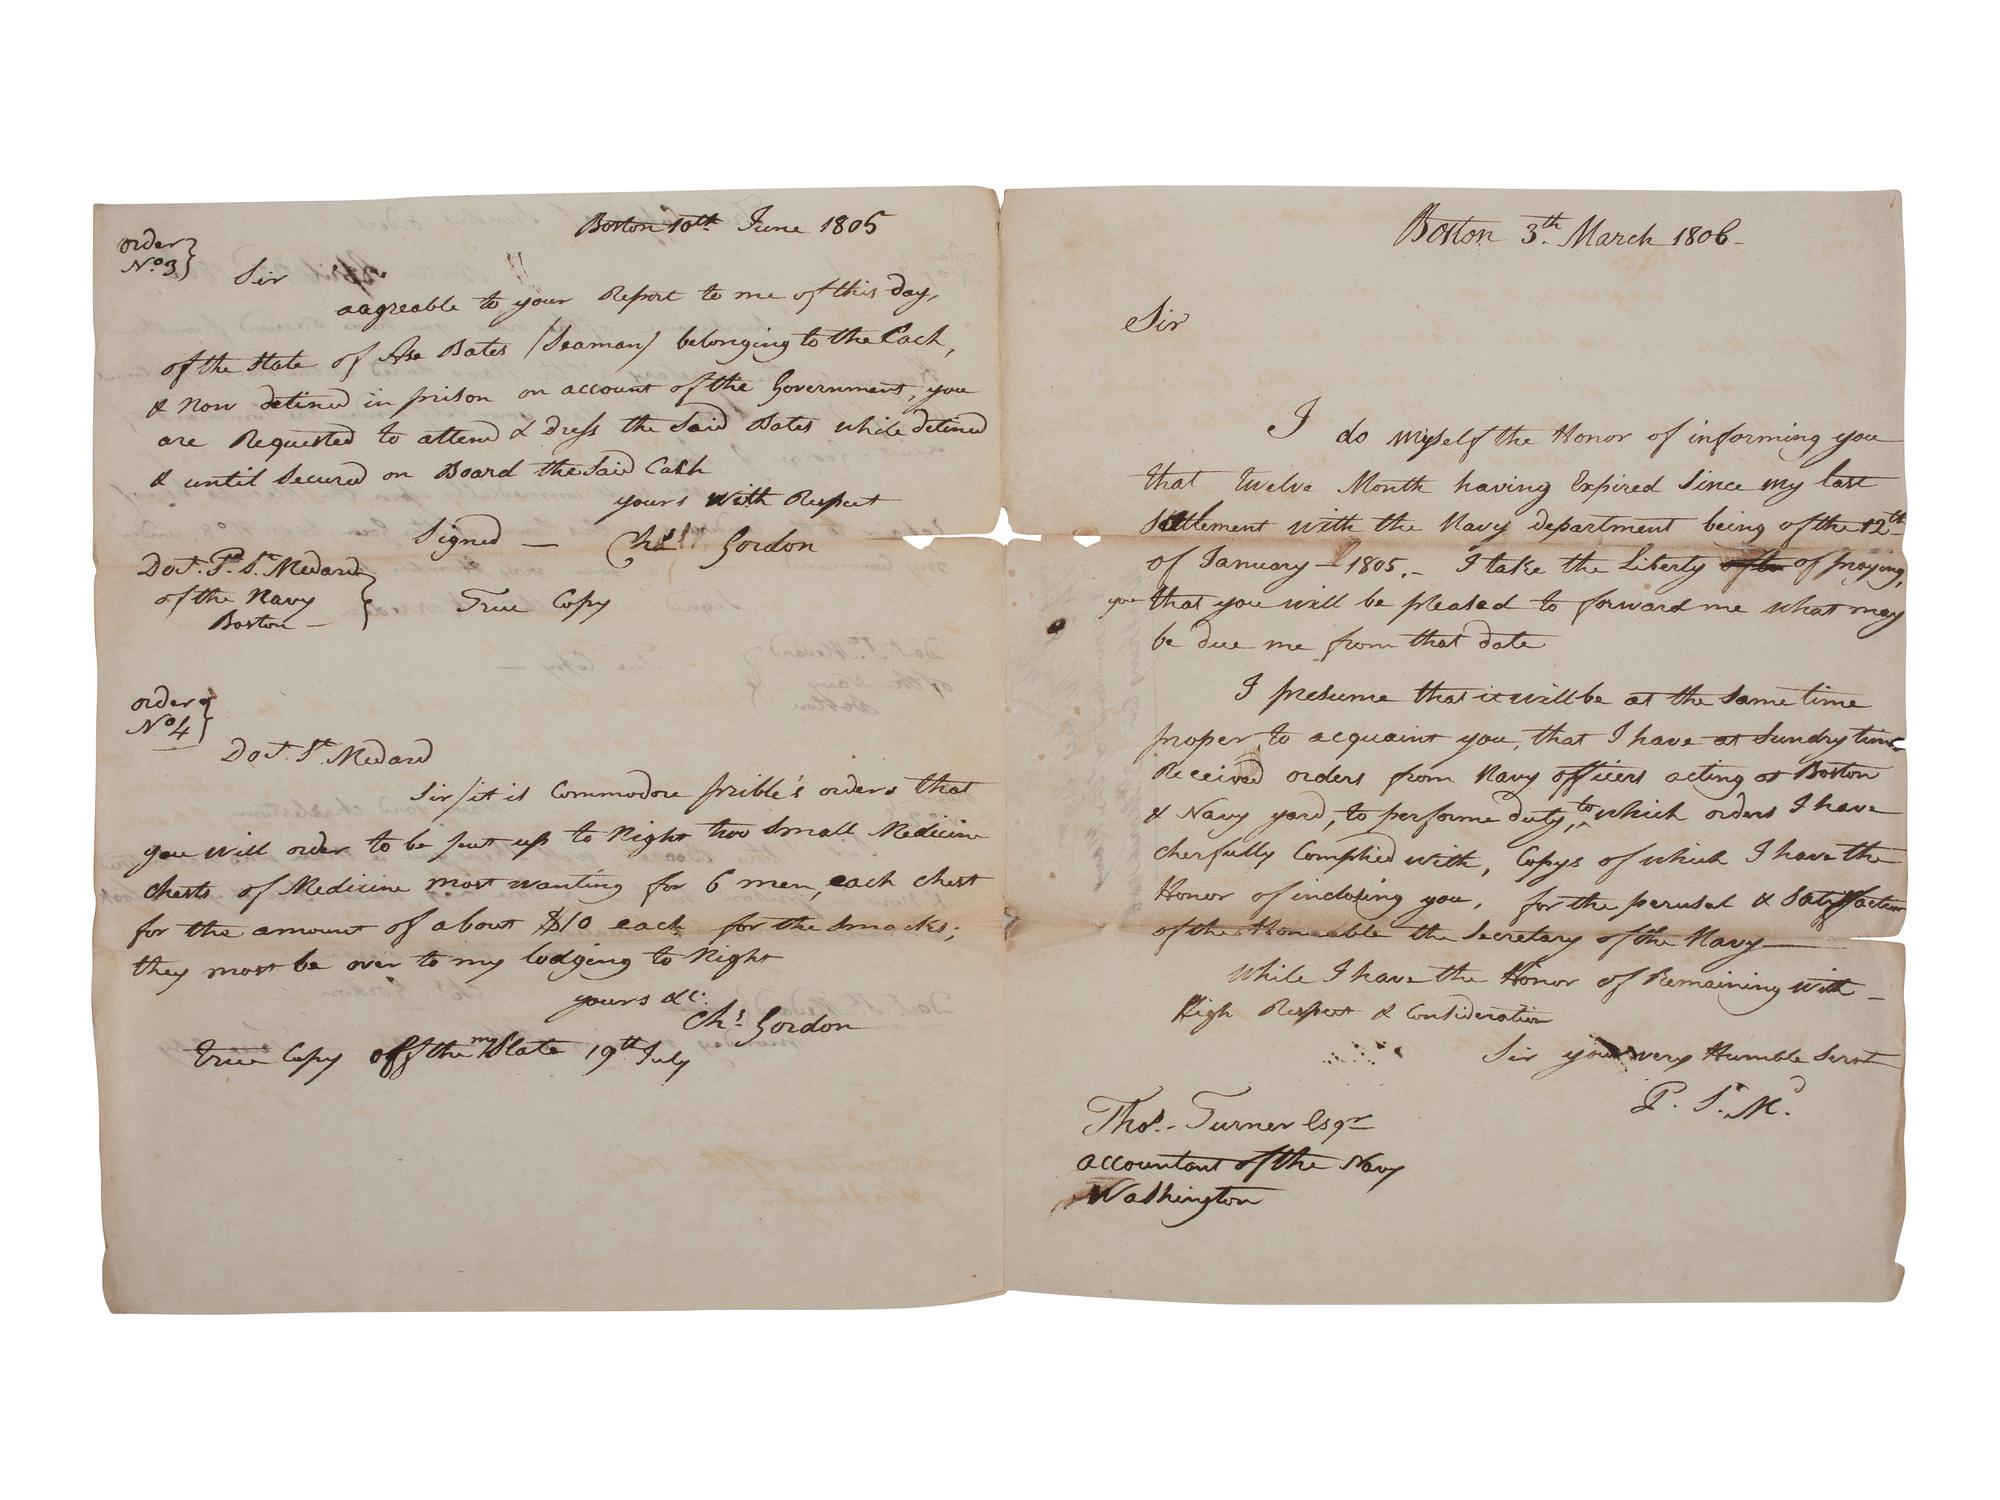 order
No. 3
Boston 10th June 1805
Sir
aagreable to your Report to me of this day,
of the State of Ase Bates /Seaman/ belonging to the Cach,
& now detined in prison on account of the Government, you
are Requested to attend & dress the Said Bates while detined
& until Secured on Board the Said Cash
yours with Respect
Signed — Chs. Gordon
Doct. P. St. Medard
of the Navy
Boston —
True Copy
order
No. 4
Doct. St. Medard
Sir/ it is Commodore prible's orders that
you will order to be put up to Night two small Medicine
chests of Medicine most wanting for 6 men, each chest
for the amount of about $10 each for the smacks;
they most be over to my lodging to Night
yours &c.
Chs. Gordon
True Copy off the my Slate 19th July
Boston 3th March 1806 -
Sir
I do myself the Honor of informing you
that twelve Month having Expired Since my last
Settlement with the Navy department being of the 12th
of January - 1805. - I take the Liberty of praying,
you that you will be pleased to forward me what may
be due me from that date
I presume that it will be at the Same time
proper to acquaint you, that I have at Sundry times
Received orders from Navy officers acting at Boston
& Navy yard, to performe duty, to which orders I have
cherfully Complied with, Copys of which I have the
Honor of inclosing you, for the perusal & Satisfaction
of the Honorable the Secretary of the Navy
While I have the Honor of Remaining with -
High Respect & Consideration
Sir your very Humble Servt
P. St. Md.
Thos. Turner Esqr
accountant of the Navy
Washington